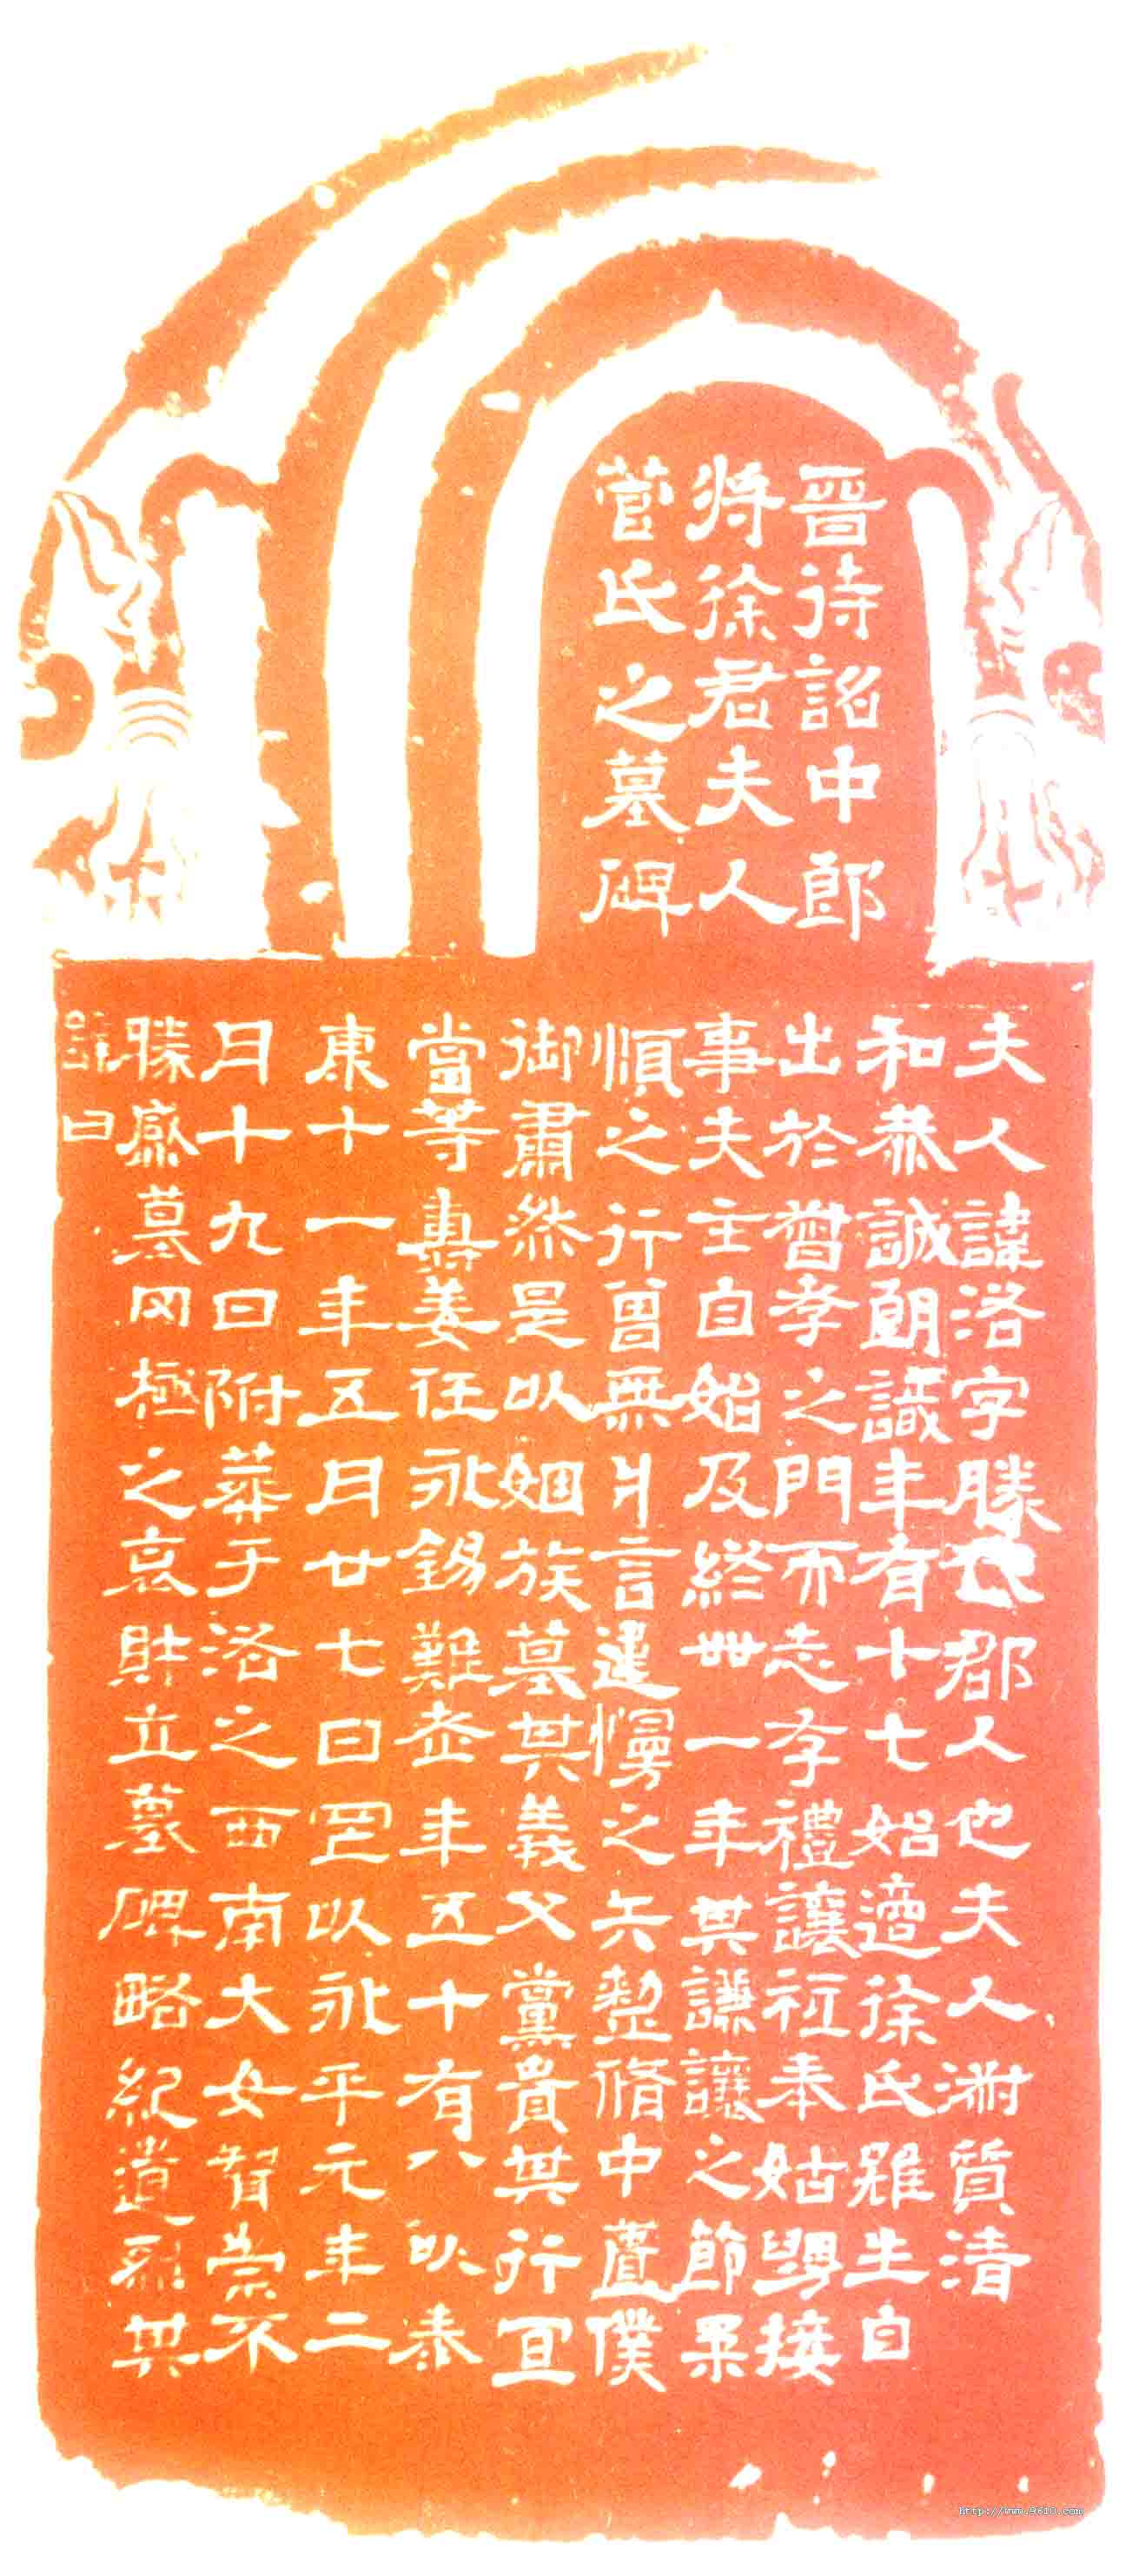 晉待詔中郎
将徐君夫人
菅氏之墓碑
夫人諱洛字勝代郡人也夫人淵質清
和恭誠朗識年有十七始適徐氏雖生自
出於督孝之門而志存禮讓祗奉姑舅接
事夫主自始及終卅一年其謙讓之節柔
順之行曾無片言違慢之矢整脩中匱僕
御肅然是以姻族墓其義父黨貴其行宜
當等壽姜任永錫難老年五十有八以泰
康十一年五月廿七日罡以永平元年二
月十九日附葬于洛之西南大女智崇不
勝感墓罔極之哀財立墓碑略紀遺烈其
辭曰
http://www.9610.com